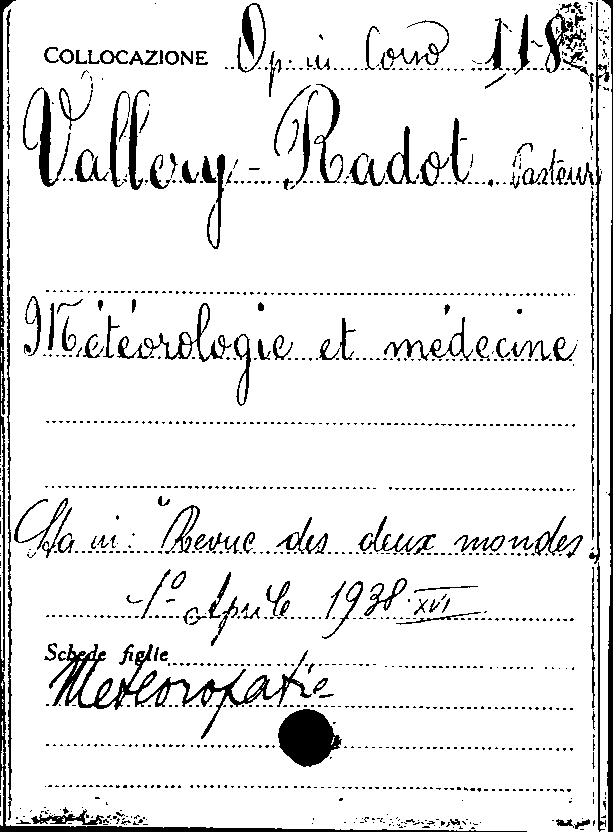 COLLOCAZIONE Op. in Corso 118
Vallery-Radot. Pasteur
Météorologie et médecine
Sta in: "Revue des deux mondes.
1º Aprile 1938 XVI
Schede figlie
Meteoropatie